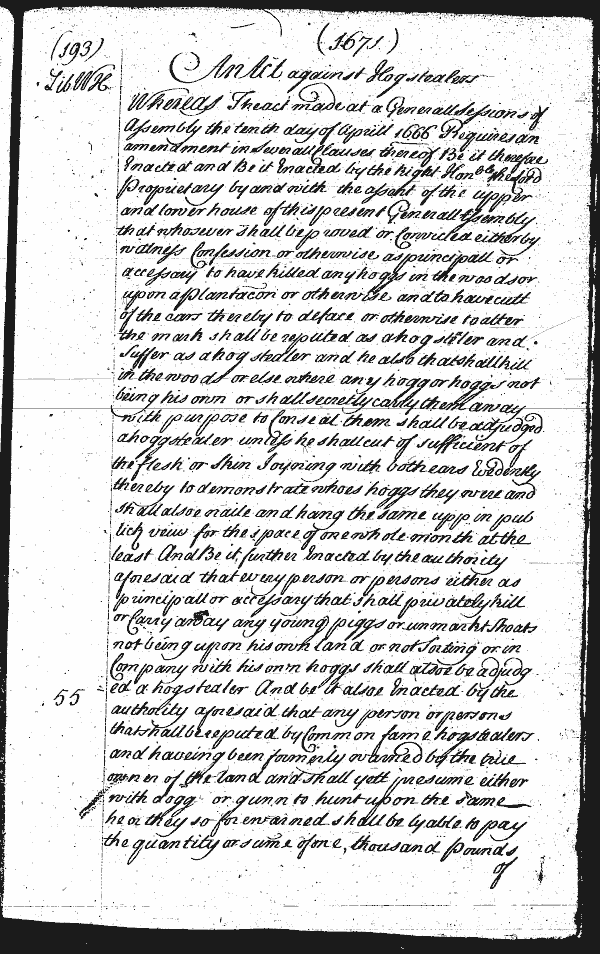 (193)
(1671.)
Lib WH
An Act against Hogstealers
Whereas The act made at a Generall Sessions of
Assembly the tenth day of Aprill 1666 Requires an
amendment in Severall Clauses thereof Be it therefore
Enacted and Be it Enacted by the Right Honble the Lord
Proprietary by and with the assent of the upper
and lower house of this present Generall Assembly
that whosoever shall be proved or Convicted either by
wittness Confession or otherwise as principall or
accessary to have killed any hoggs in the woods or
upon a Plantacon or otherwise and to have cutt
of the ears thereby to deface or otherwise to alter
the mark shall be reputed as a hog steler and
Suffer as a hog stealer and he also that shall kill
in the woods or else where any hogg or hoggs not
being his own or shall secretly carry them away
with purpose to Conseal them shall be adjudged
a hoggstealer unless he shall cut of sufficient of
the flesh or skin Joyning with both ears Evedently
thereby to demonstrate whoes hoggs they were and
shall alsoe naile and hang the same upp in pub
lick veiw for the space of one whole month at the
least And Be it further Enacted by the authority
aforesaid that every person or persons either as
principall or accessary that shall privately kill
or Carry away any young piggs or unmarkt Shoats
not being upon his own land or not Sorting or in
Company with his own hoggs shall alsoe be adjudg
ed a hogstealer And be it alsoe Enacted by the
55
authority aforesaid that any person or persons
that shall be reputed by Common fame hogstealers
and haveing been formerly warned by the true
owner of the land and shall yett presume either
with dogg or gunn to hunt upon the same
he or they so forewarned shall be lyable to pay
the quantity or sume of one, thousand pounds
of